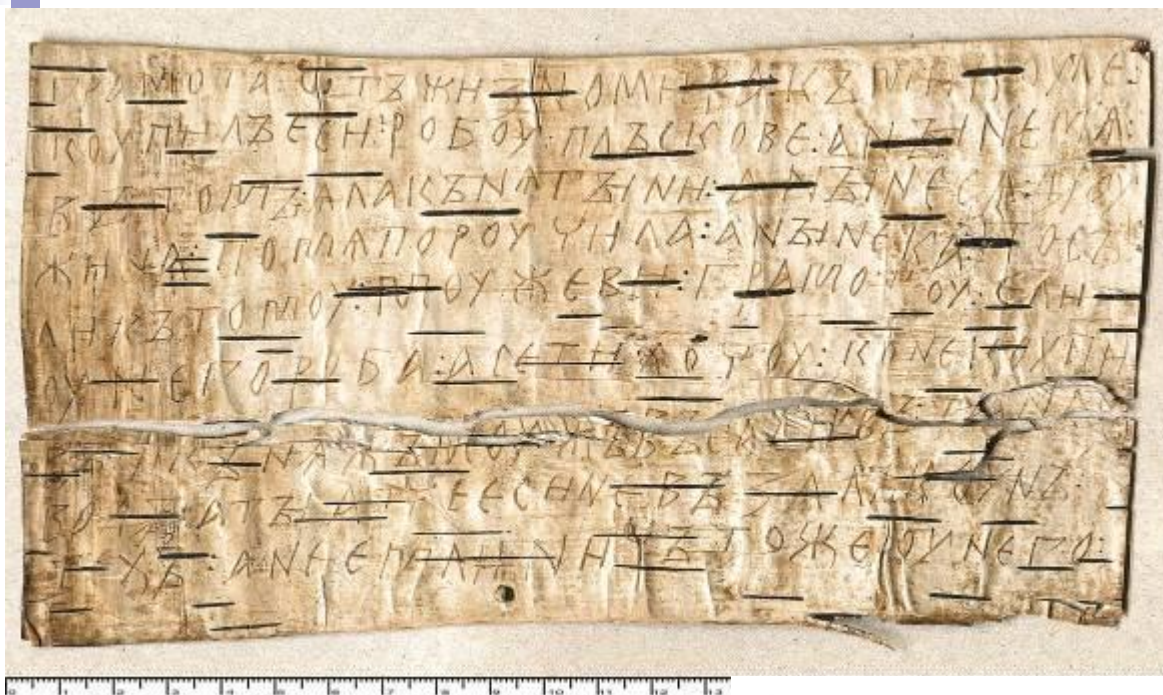 грамота : ѡтъ жизномира : къ микоуле :
коупилъ еси : робоу : плъскове : а нынѣ мѧ :
въ томъ : ѧла кънѧгыни : а нынѣ сѧ дроу
жина : по мѧ пороучила : а нынѣ ка : посъ
ли къ томоу : моужеви : грамотоу : ели
оу него роба : а се ти хочоу : коне коупи
въ : и кънѧжъ моужъ въсадивъ : та на съ
воды : а ты атче еси не възалъ коунъ :
техъ : а не емли : ничъто же оу него :